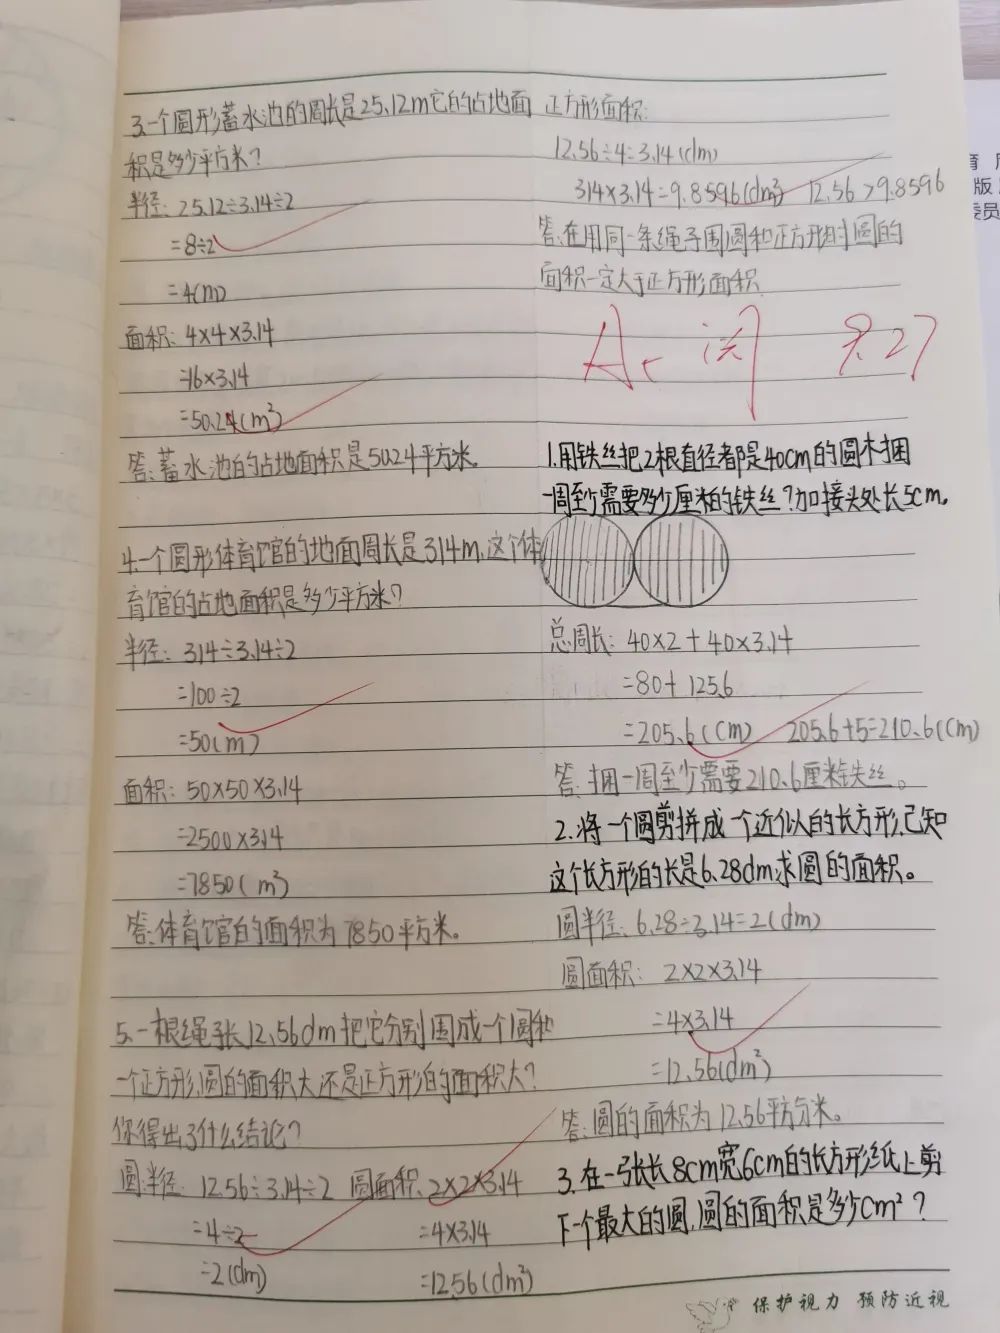 3.一个圆形蓄水池的周长是25.12m它的占地面
积是多少平方米?
半径: 25.12÷3.14÷2
=8÷2
=4(m)
面积: 4×4×3.14
=16×3.14
=50.24(m²)
答:蓄水池的占地面积是50.24平方米。
4.一个圆形体育馆的地面周长是314m,这个体
育馆的占地面积是多少平方米?
半径: 314÷3.14÷2
=100÷2
=50(m)
面积: 50×50×3.14
=2500×3.14
=7850(m²)
答:体育馆的面积为7850平方米。
5.一根绳子长12.56dm把它分别围成一个圆和
一个正方形,圆的面积大还是正方形的面积大?
你得出了什么结论?
圆半径: 12.56÷3.14÷2 圆面积: 2×2×3.14
=4÷2 =4×3.14
=2(dm) =12.56(dm²)
正方形面积:
12.56÷4=3.14(dm)
3.14×3.14=9.8596(dm²) 12.56>9.8596
答:在用同一条绳子围圆和正方形时圆的
面积一定大于正方形面积.
A. 阅 9.27
1.用铁丝把2根直径都是40cm的圆木捆
一周至少需要多少厘米的铁丝?加接头处长5cm。
总周长: 40×2+40×3.14
=80+125.6
=205.6(cm) 205.6+5=210.6(cm)
答:捆一周至少需要210.6厘米铁丝。
2.将一个圆剪拼成一个近似的长方形,已知
这个长方形的长是6.28dm求圆的面积。
圆半径: 6.28÷3.14=2(dm)
圆面积: 2×2×3.14
=4×3.14
=12.56(dm²)
答:圆的面积为12.56平方分米。
3.在一张长8cm宽6cm的长方形纸上剪
下一个最大的圆,圆的面积是多少cm²?
保护视力 预防近视
育
版
委员